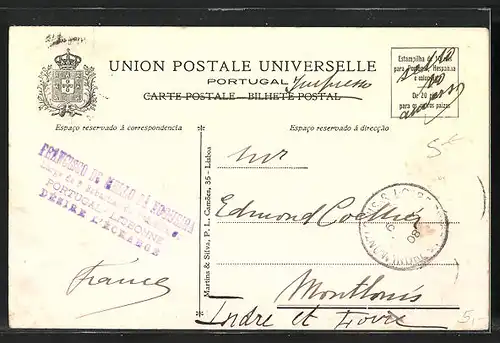 UNION POSTALE UNIVERSELLE
PORTUGAL
Impresso
CARTE-POSTALE - BILHETE POSTAL
Estampilha de
para Portugal, Hespanha
e
De 20 réis
para os outros paizes
Espaço reservado á correspondencia
Espaço reservado á direcção
FRANCISCO DE MELLO DA NOGUEIRA
PORTUGAL LISBONNE
DÉSIRE L'ÉCHANGE
Martins & Silva, P. L. Camões, 35 - Lisboa
Mr
Edmond
France
Montlouis
Indre et Loire
08
5,-